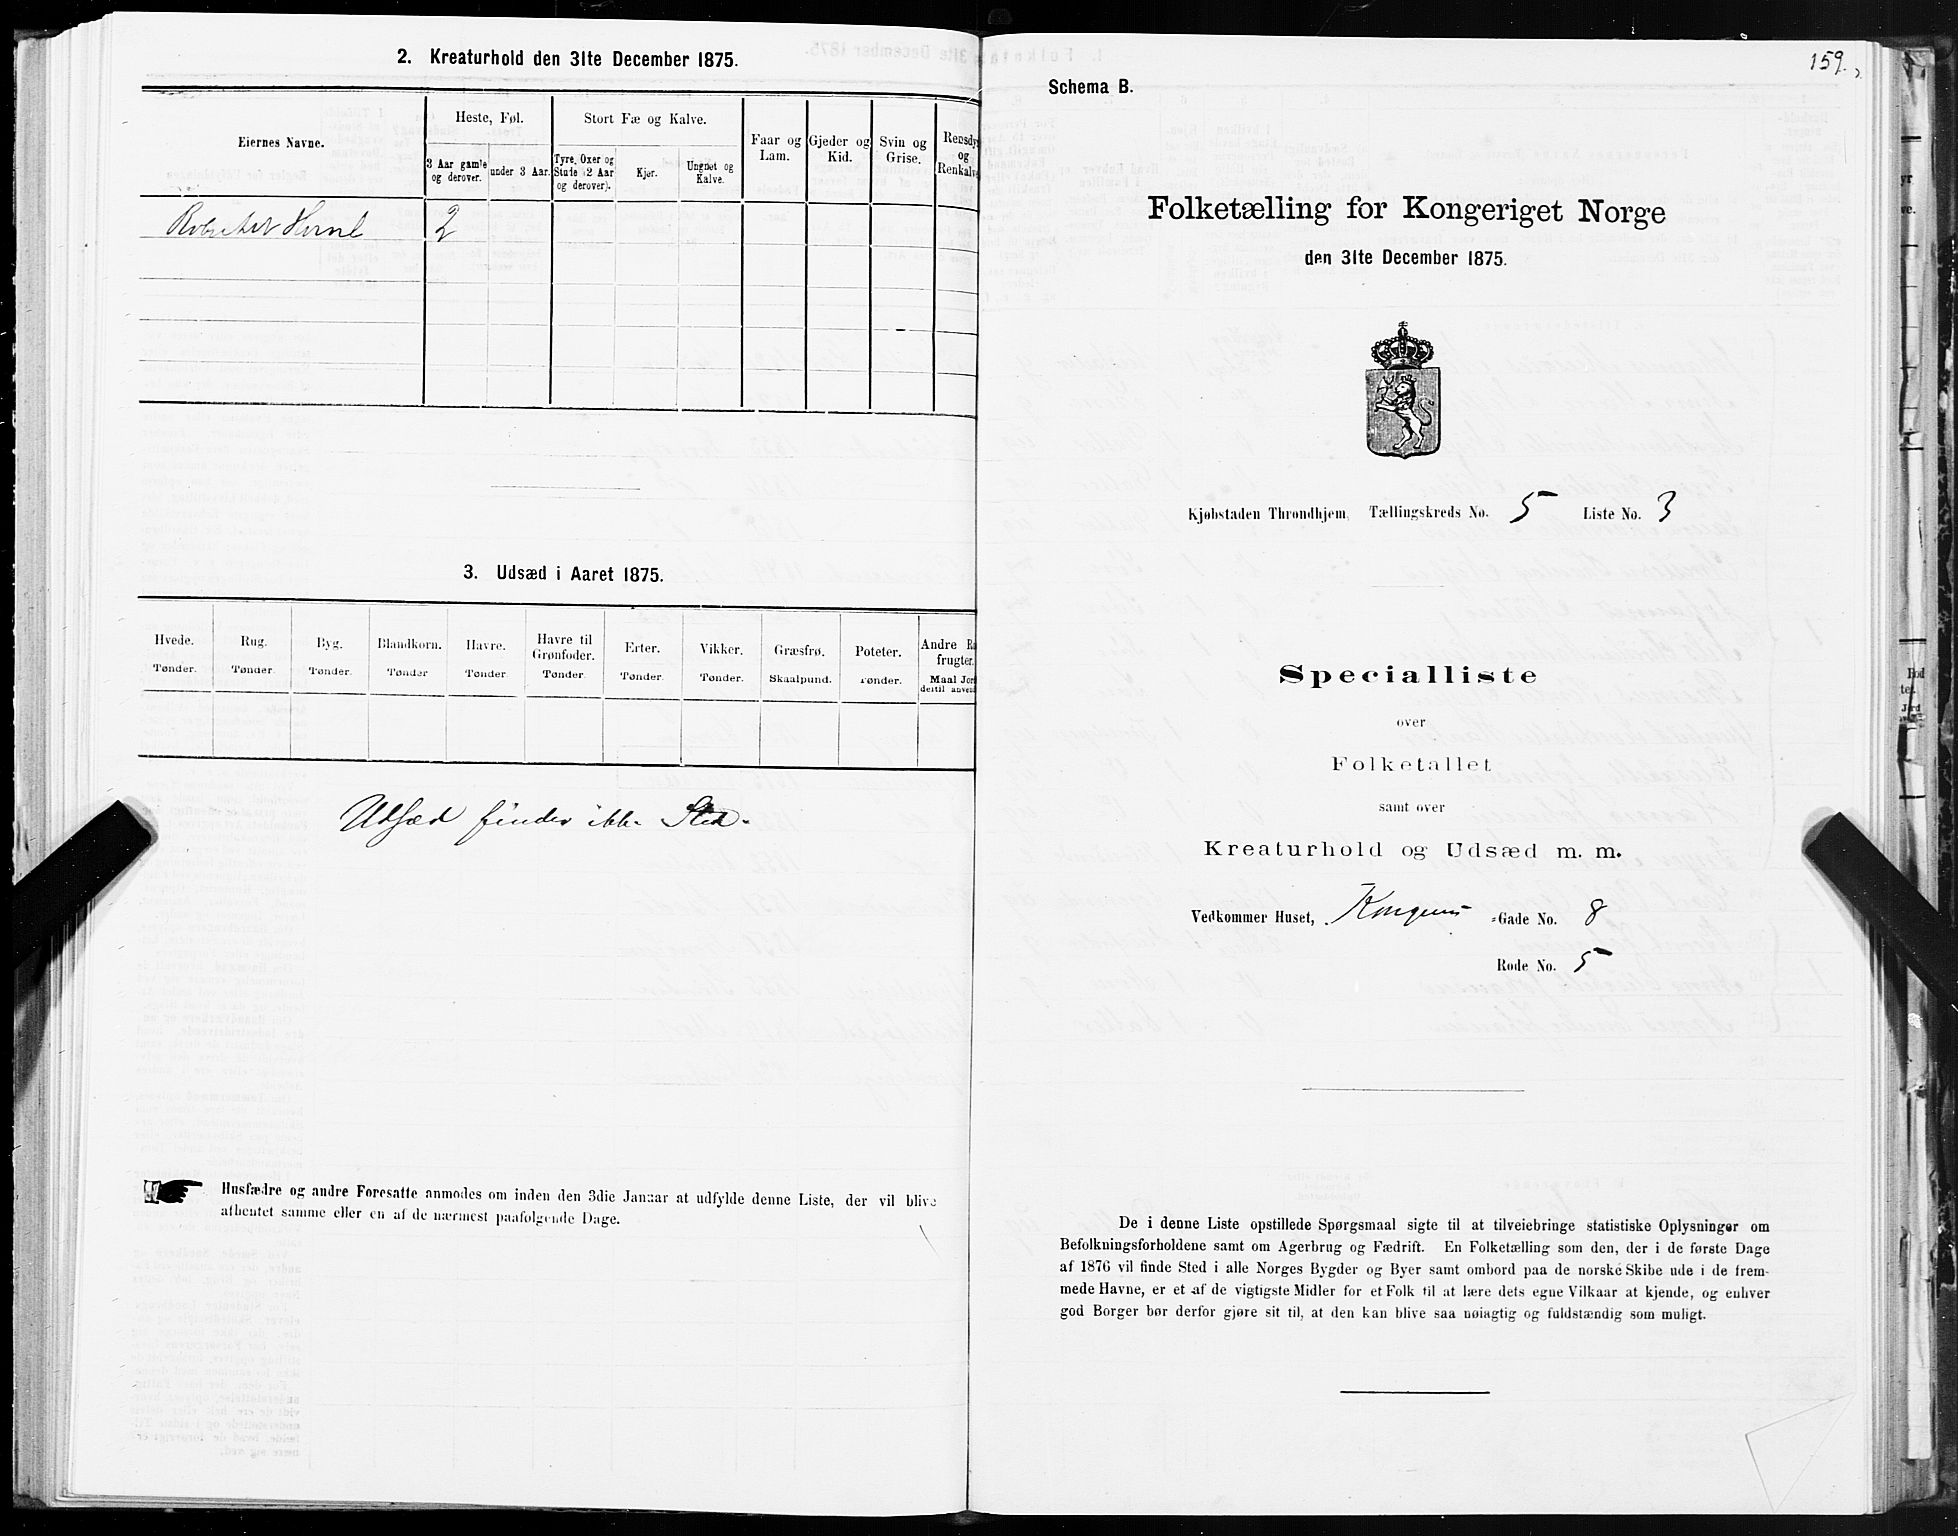 2. Kreaturhold den 31te December 1875.
Eiernes Navne.
Heste, Føl.
Stort Fæ og Kalve.
Faar og Lam.
Gjeder og Kid.
Svin og Grise.
Rensdyr og Renkalve
3 Aar gamle og derover.
under 3 Aar.
Tyre, Oxer og Stude (2 Aar og derover).
Kjør.
Ungnøt og Kalve.
2
3. Udsæd i Aaret 1875.
Hvede. Rug. Byg. Blandkorn. Havre. Havre til Grønfoder. Erter. Vikker. Græsfrø. Poteter. Andre Ro frugter.
Tønder. Tønder. Tønder. Tønder Tønder. Tønder. Tønder. Tønder. Skaalpund. Tønder. Maal Jord dertil anvend
Udsæd finder ikke Sted.
Husfædre og andre Foresatte anmodes om inden den 3die Januar at udfylde denne Liste, der vil blive
afhentet samme eller en af de nærmest paafølgende Dage.
159.
Schema B.
Folketælling for Kongeriget Norge
den 31te December 1875.
Kjøbstaden Throndhjem, Tællingskreds No. 5 Liste No. 3
Specialliste
over
Folketallet
samt over
Kreaturhold og Udsæd m. m.
Vedkommer Huset, Kongens -Gade No. 8
Rode No. 5
De i denne Liste opstillede Spørgsmaal sigte til at tilveiebringe statistiske Oplysninger om
Befolkningsforholdene samt om Agerbrug og Fædrift. En Folketælling som den, der i de første Dage
af 1876 vil finde Sted i alle Norges Bygder og Byer samt ombord paa de norske Skibe ude i de frem-
mede Havne, er et af de vigtigste Midler for et Folk til at lære dets egne Vilkaar at kjende, og enhver
god Borger bør derfor gjøre sit til, at den kan blive saa nøiagtig og fuldstændig som muligt.